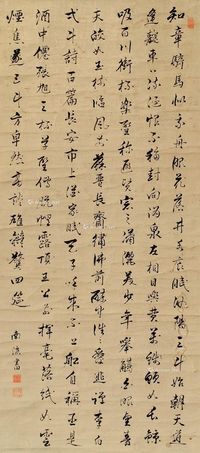 知章騎馬似乘舟眼花落井水底眠汝陽三斗始朝天道
逢麴車口流涎恨不移封向酒泉左相日興費萬錢飲如長鯨
吸百川銜杯樂聖稱避賢宗之瀟灑美少年舉觴白眼望青
天皎如玉樹臨風前蘇晉長齋繡佛前醉中往往愛逃禪李白
一斗詩百篇長安市上酒家眠天子呼來不上船自稱臣是
酒中仙張旭三杯草聖傳脫帽露頂王公前揮毫落紙如雲
煙焦遂五斗方卓然高談雄辯驚四筵